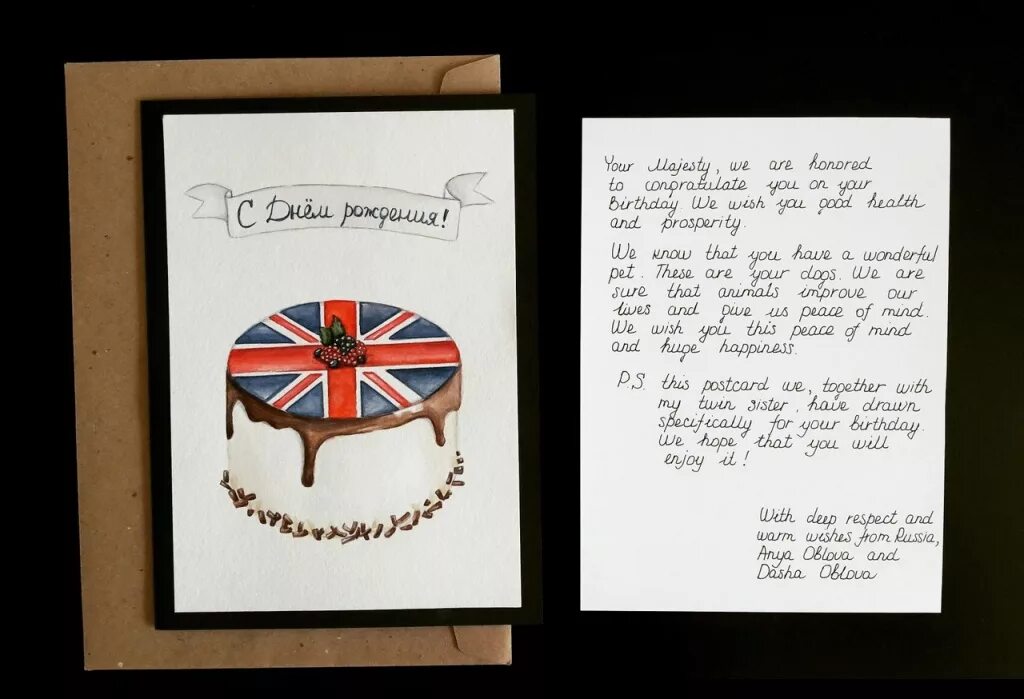 С Днём рождения!
Your Majesty, we are honored
to congratulate you on your
Birthday. We wish you good health
and prosperity.
We know that you have a wonderful
pet. These are your dogs. We are
sure that animals improve our
lives and give us peace of mind.
We wish you this peace of mind
and huge happiness.
P.S. this postcard we, together with
my twin sister, have drawn
specifically for your birthday.
We hope that you will
enjoy it!
With deep respect and
warm wishes from Russia,
Anya Oblova and
Dasha Oblova